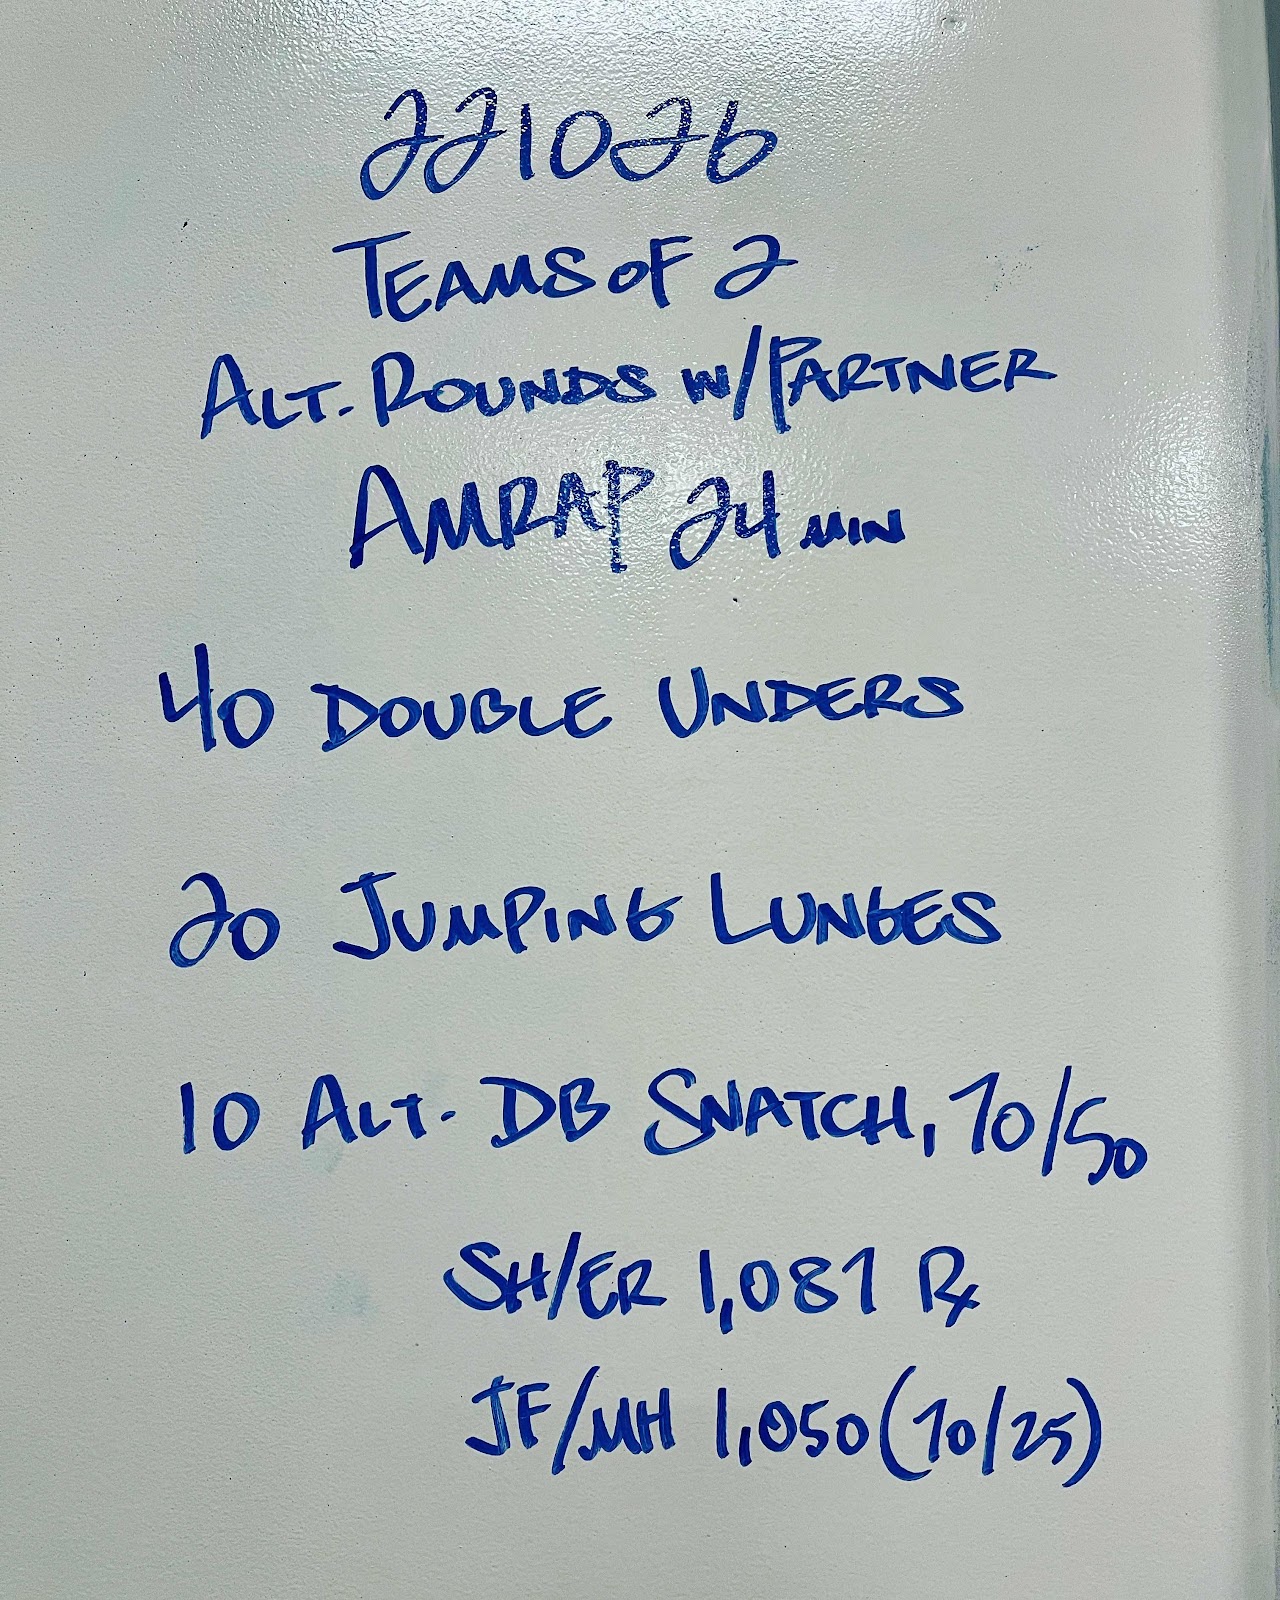 221026
TEAMS OF 2
ALT. ROUNDS W/PARTNER
AMRAP 24 MIN
40 DOUBLE UNDERS
20 JUMPING LUNGES
10 ALT. DB SNATCH, 70/50
SH/ER 1,087 Rx
JF/MH 1,050 (70/25)